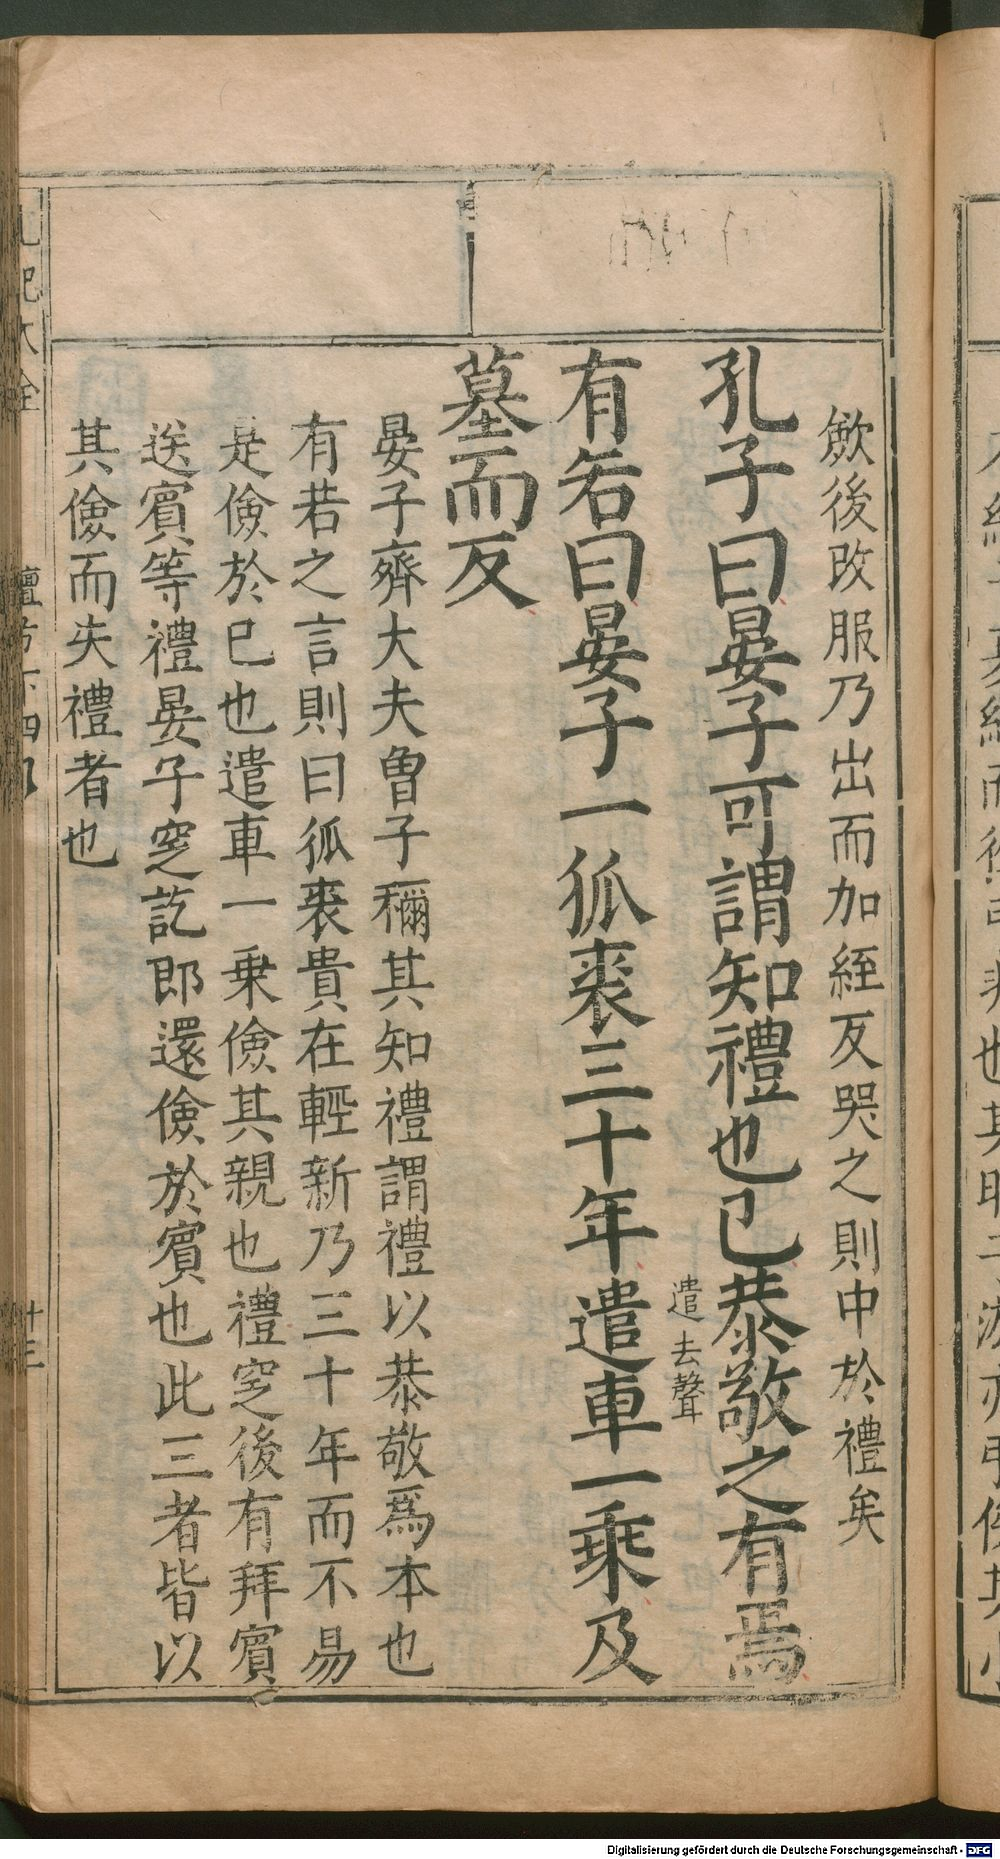 斂後改服乃出而加絰反哭之則中於禮矣
孔子曰晏子可謂知禮也已恭敬之有焉
遣去聲
有若曰晏子一狐裘三十年遣車一乘及
墓而反
晏子齊大夫曾子稱其知禮謂禮以恭敬爲本也
有若之言則曰狐裘貴在輕新乃三十年而不易
是儉於己也遣車一乘儉其親也禮窆後有拜賓
送賓等禮晏子窆訖即還儉於賓也此三者皆以
其儉而失禮者也
檀弓下四
十三
Digitalisierung gefördert durch die Deutsche Forschungsgemeinschaft - DFG